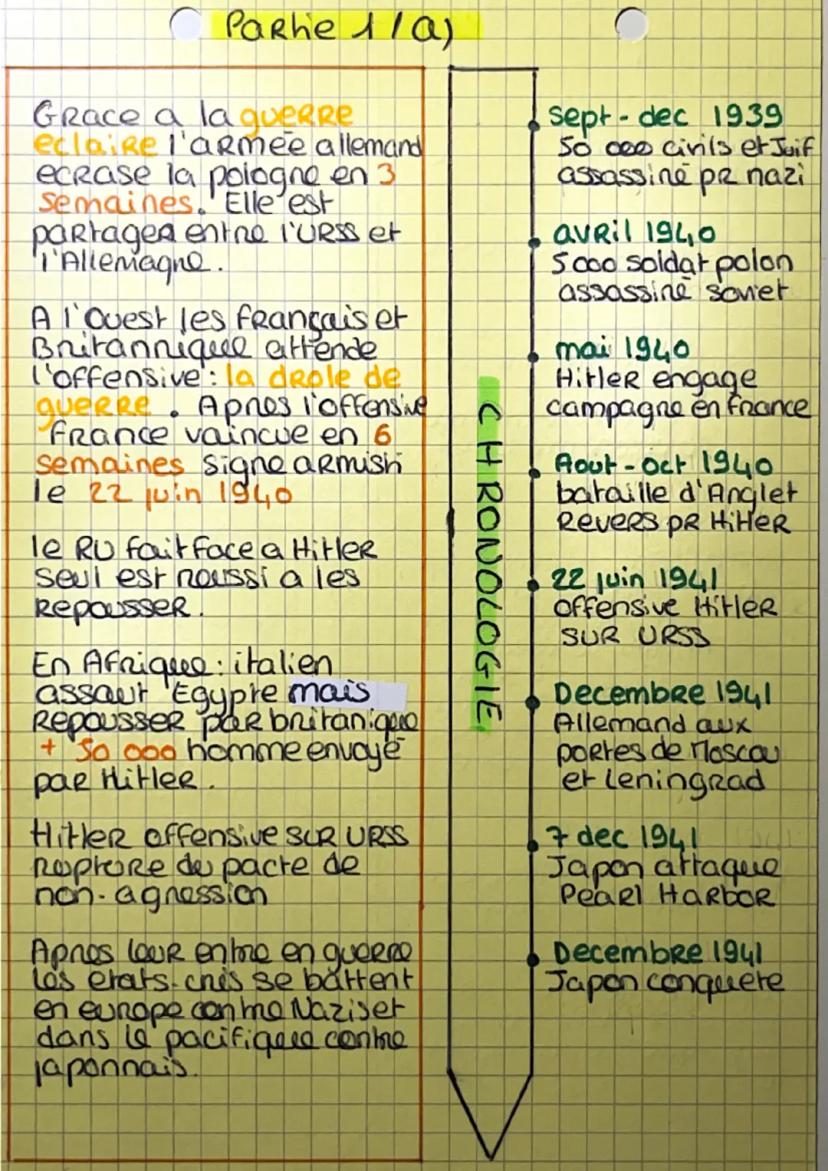 Partie 1/a)
Grace a la guerre
eclaire l'armée allemand
ecrase la pologne en 3
semaines. Elle est
partager entre l'URSS et
l'Allemagne.
A l'Ouest les français et
Britannique attende
l'offensive : la drole de
guerre. Apres l'offensive
France vaincue en 6
semaines signe armisti
le 22 juin 1940
le RU fait face a Hitler
seul est reussi a les
repousser.
En Afrique : italien
assaut Egypte mais
repousser par britanique
+ 50 000 homme envoyé
par Hitler.
Hitler offensive sur URSS
rupture du pacte de
non-agression
Apres leur entre en guerre
les etats-unis se battent
en europe contre Nazis et
dans le pacifique contre
japonnais.
CHRONOLOGIE
sept - dec 1939
50 000 civils et Juif
assassiné pr nazi
avril 1940
5 000 soldat polon
assassiné soviet
mai 1940
Hitler engage
campagne en france
Aout - oct 1940
bataille d'Anglet
revers pr Hitler
22 juin 1941
offensive Hitler
sur URSS
Decembre 1941
Allemand aux
portes de Moscou
et Leningrad
7 dec 1941
Japon attaque
Pearl Harbor
Decembre 1941
Japon conquete